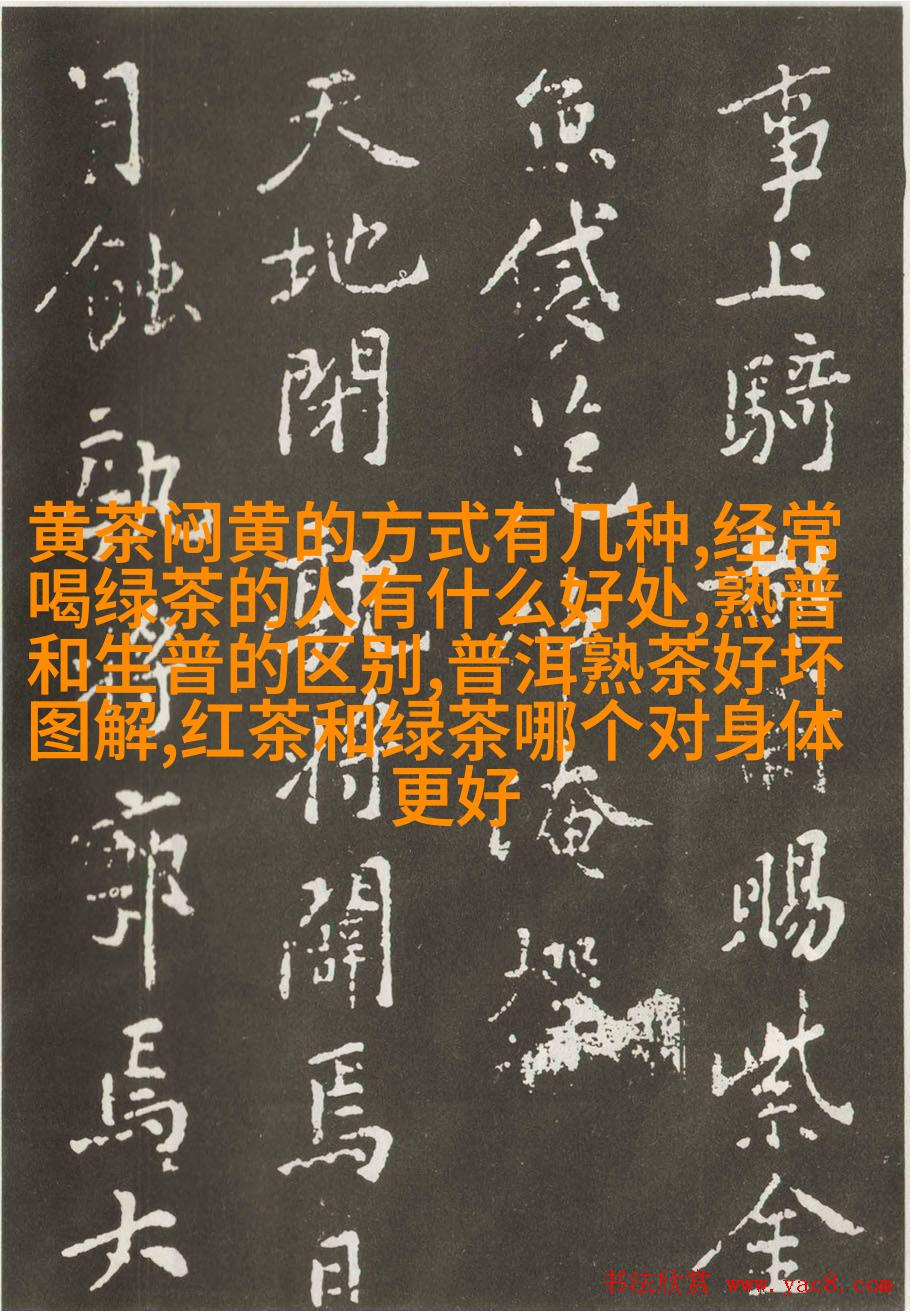 事上騎都尉賜紫金
魚袋范仲淹撰
天地閉孰將闢焉日
月蝕孰將廓焉大
黄茶闷黄的方式有几种,经常
喝绿茶的人有什么好处,熟普
和生普的区别,普洱熟茶好坏
图解,红茶和绿茶哪个对身体
更好
书法欣赏 www.yac8.com